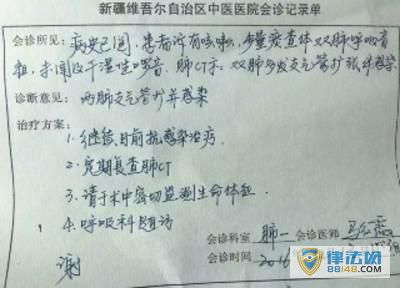 新疆维吾尔自治区中医医院会诊记录单
会诊所见：病史已阅，患者诉有咳嗽，少量痰查体双肺呼吸音
粗，未闻及干湿性啰音.肺CT示：双肺多发支气管扩张并感染.
诊断意见：两肺支气管扩并感染
治疗方案：
1.继续目前抗感染治疗
2.定期复查肺CT
3.请于术中密切监测生命体征
4.呼吸科随访
谢
会诊科室 肺一 会诊医师 马
会诊时间 2016
律法网
88148.com